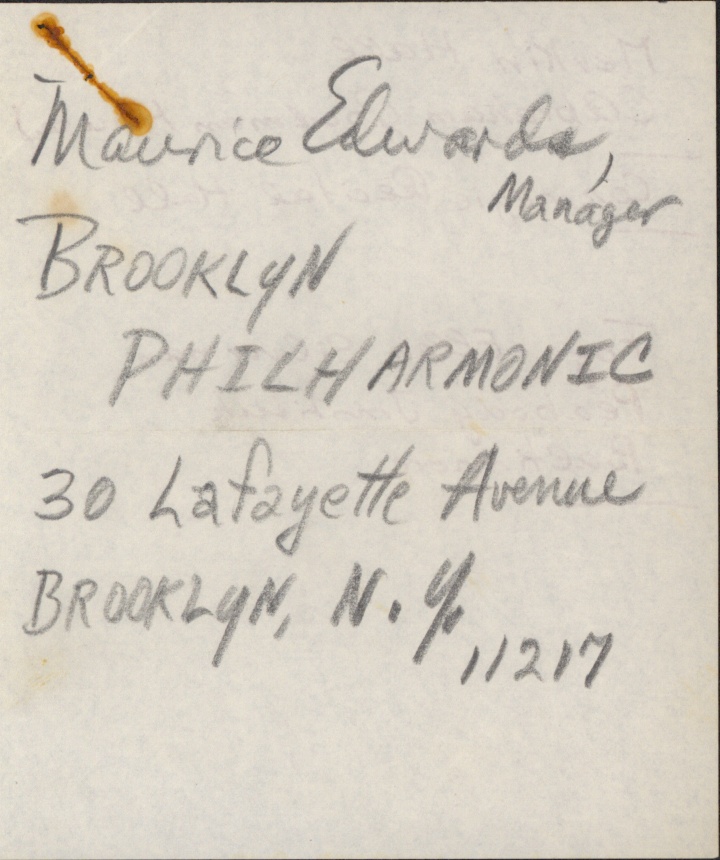 Maurice Edwards,
Manager
BROOKLYN
PHILHARMONIC
30 Lafayette Avenue
BROOKLYN, N.Y.
11217